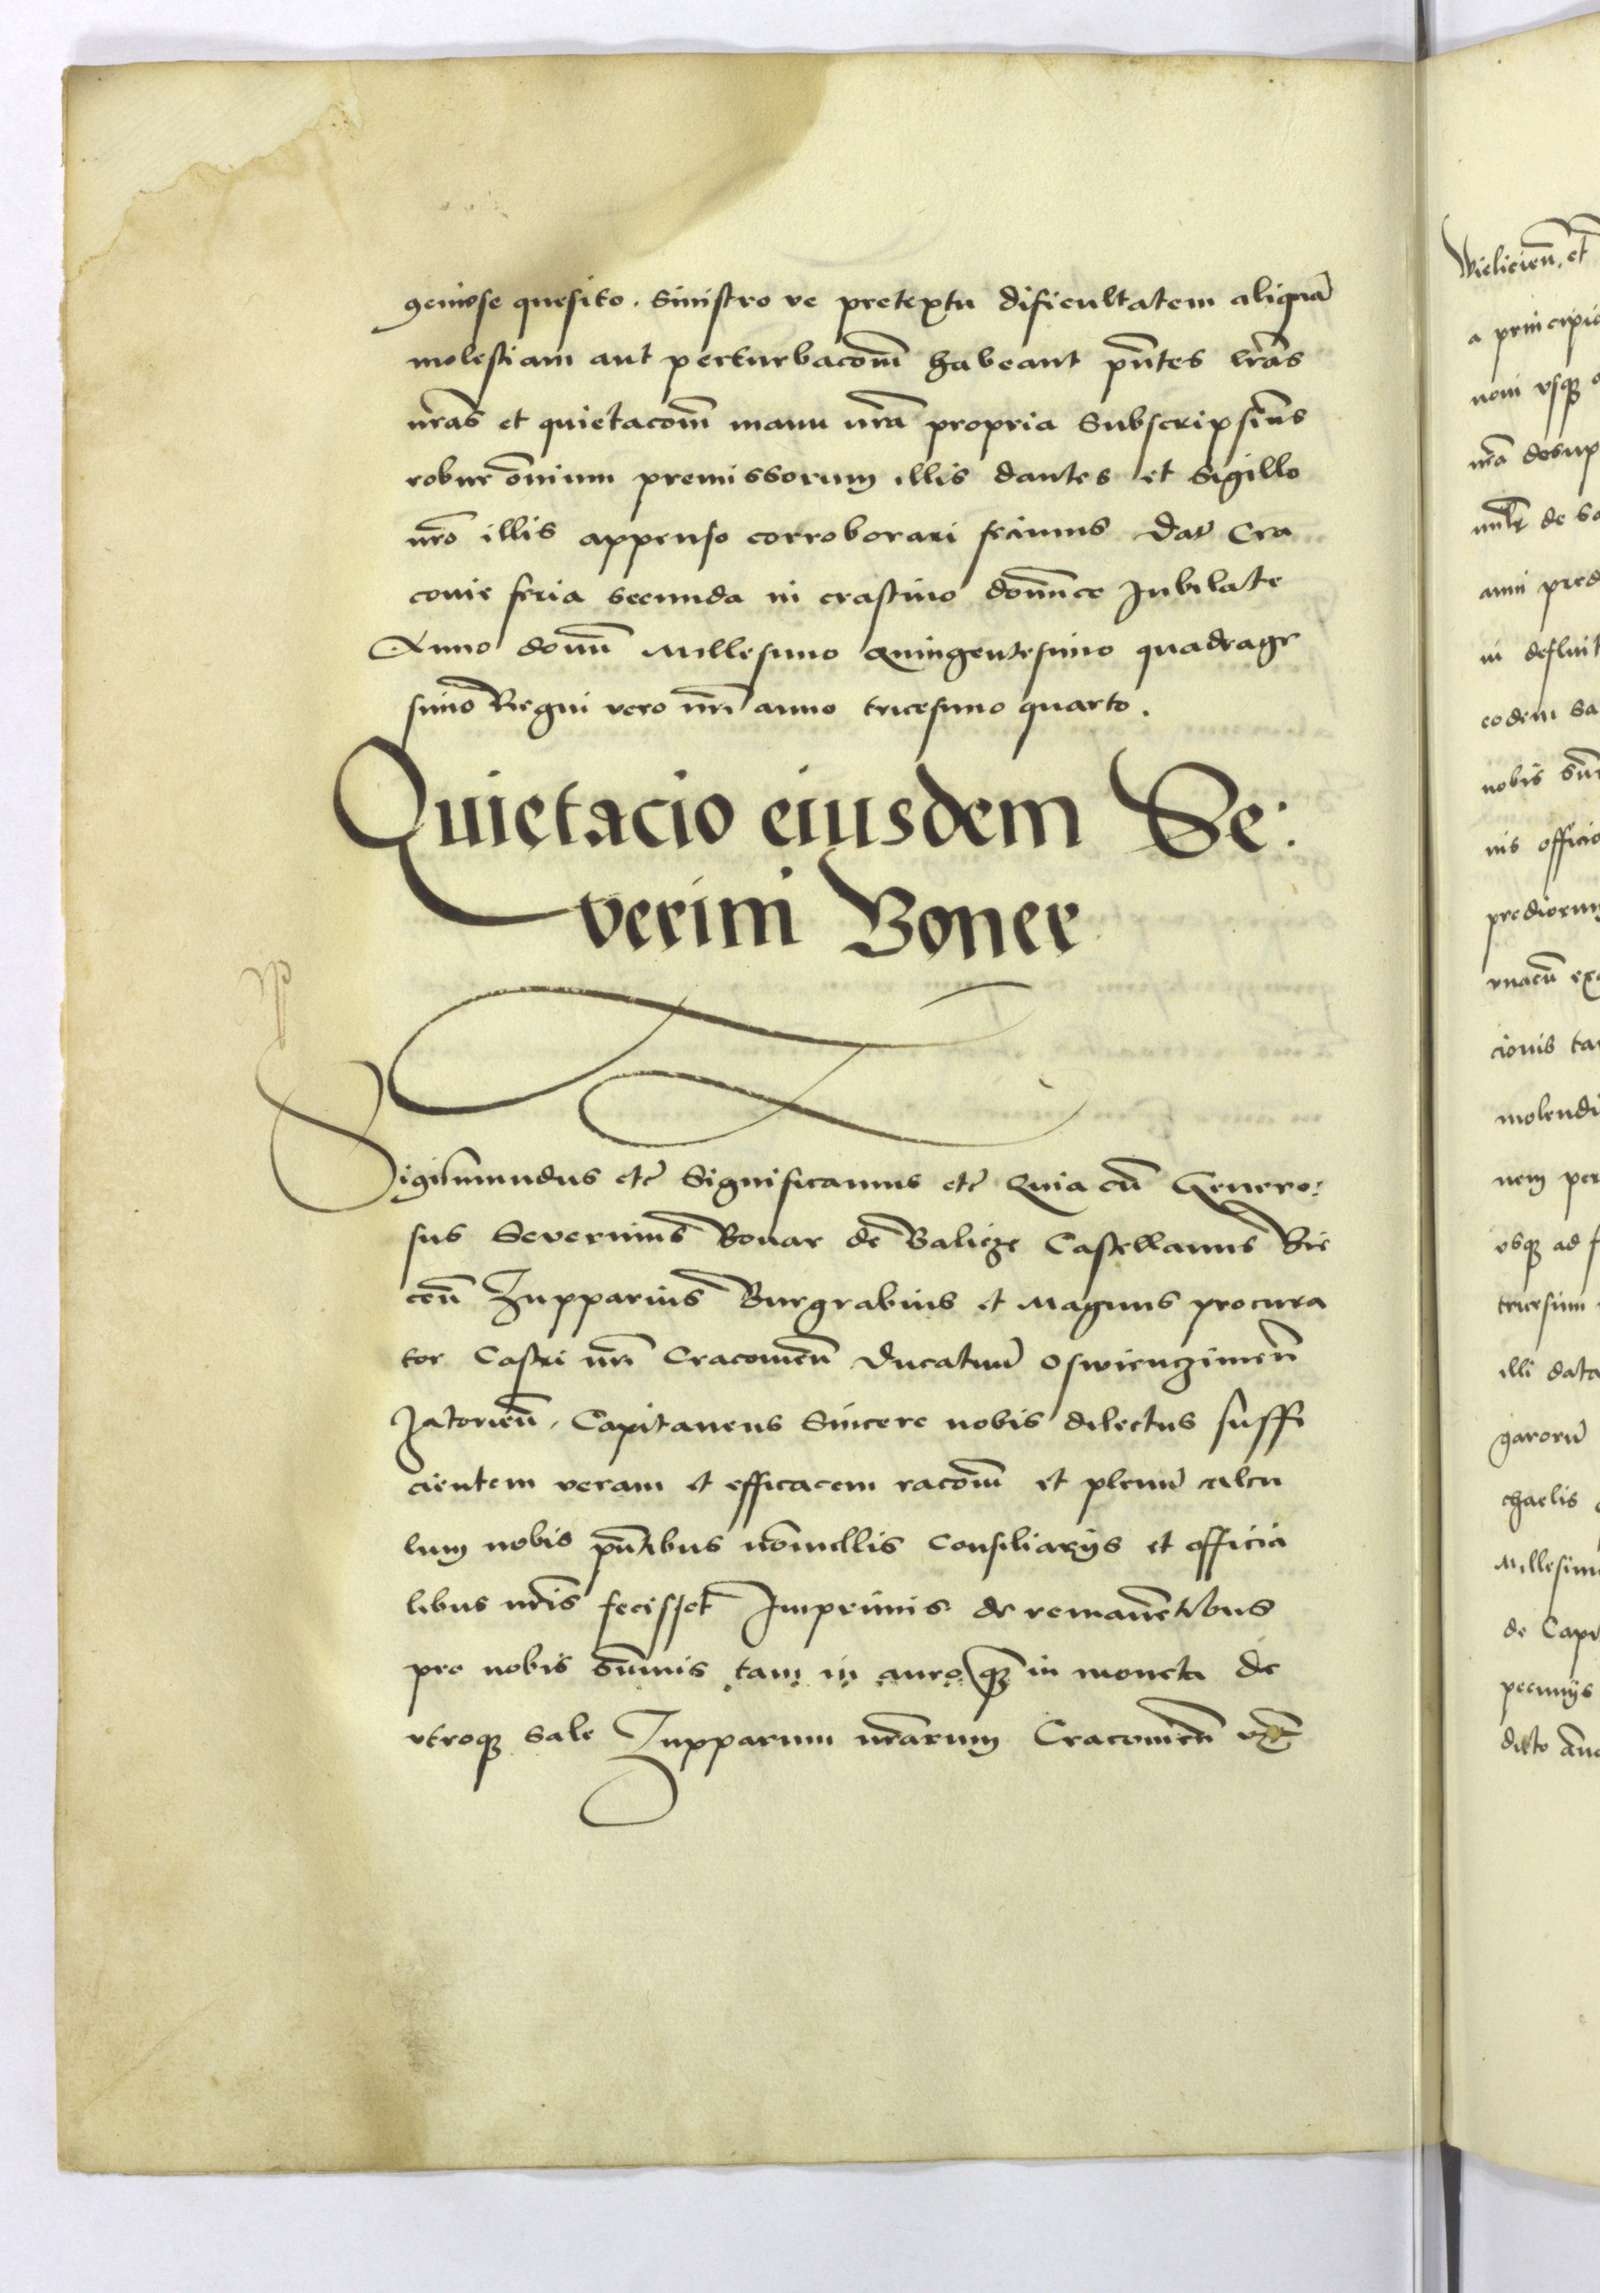 geniose quesito. Sinistro ve pretextu dificultatem aliquā
molestiam aut perturbacōm̄ habeant pn̄tes lr̄as
nr̄as et quietacōm̄ manu nr̄a propria Subscripsim̄s
robur om̄nium premissorum illis dantes et Sigillo
nr̄o illis appenso corroborari fecimus Dat̄ Cra
covie feria secunda in crastino domīce Jubilate
Anno domī Millesimo Quingentesimo quadrage
simo Regni vero nr̄i anno tricesimo quarto.
Quietacio eiusdem Se:
verini Boner
Sigismundus etc̄ Significamus etc̄ Quia cū Genero:
sus Severinus Bonar de Balicze Castellanus Bie
cen̄ Zupparius Burgrabius et Magnus procura
tor Castri nr̄i Cracovien̄ Ducatuū Oswienczimen̄
Zatorien̄. Capitaneus Sincere nobis dilectus suffi
cientem veram et efficacem racōm̄ et plenū calcu
lum nobis pn̄tibus nōnullis Consiliarijs et officia
libus nr̄is fecisset Imprimis de remanētibus
pro nobis sūmis tam in auro qȝ in moneta de
vtroqȝ sale Zupparum nr̄arum Cracovien̄ vȝ
Wielicien̄. et
a principio
nem vsqȝ
nr̄a desup
de
anni pred
in defluit
eodem sa
nobis sūm
nis officio
prediorum
vnacū
cionis ta
molendi
nem per
vsqȝ ad f
tricesimi
illi data
garorū
chaelis
Millesim
de Capi
pecunijs
dicto